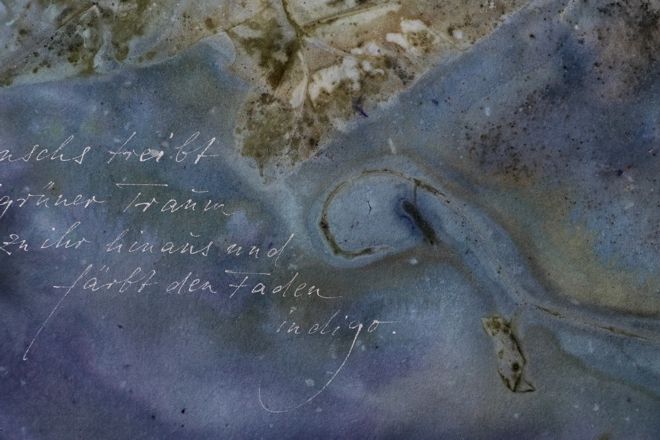 treibt
grüner Traum
zu ihr hinaus und
färbt den Faden
indigo.